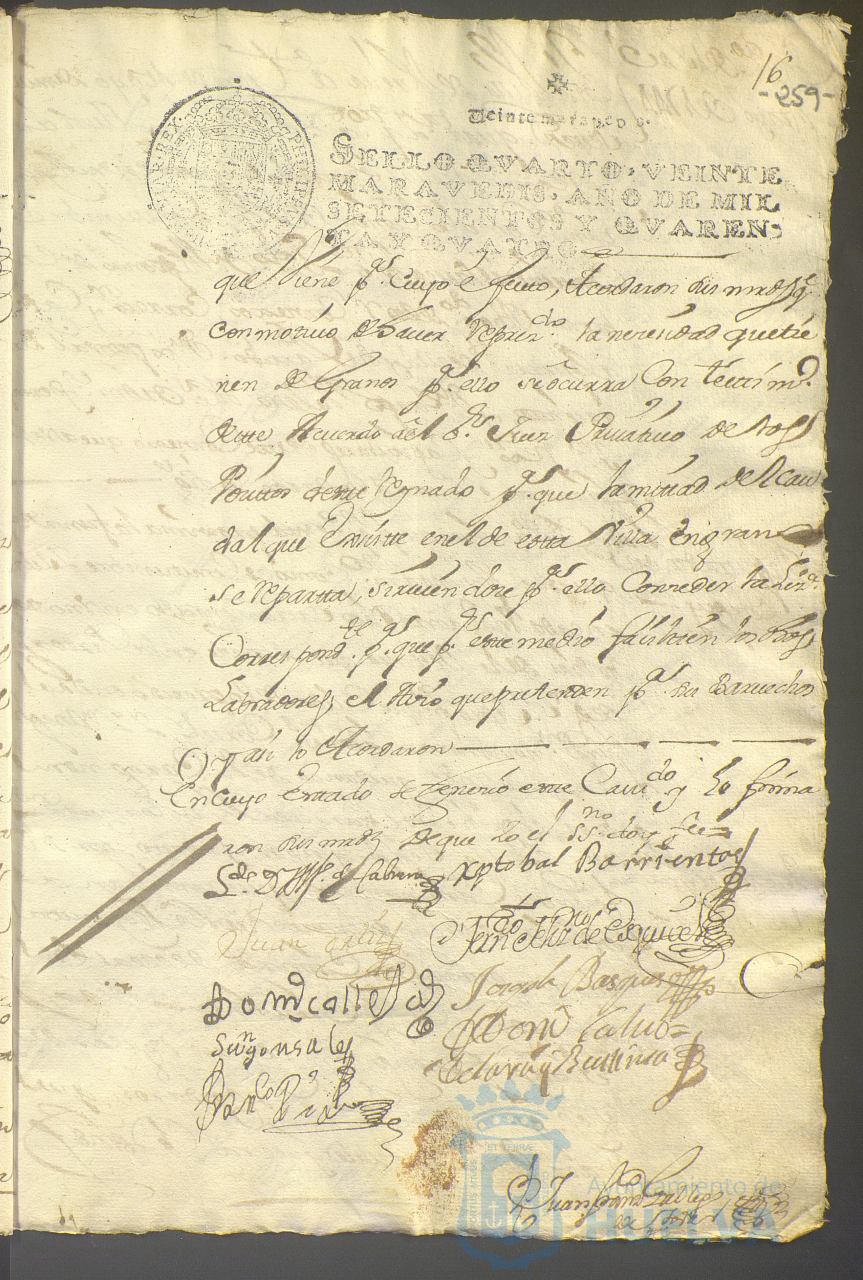 16
-259-
Veinte maravedis.
SELLO QVARTO, VEINTE
MARAVEDIS, AÑO DE MIL
SETECIENTOS Y QVAREN-
TA Y QVATRO
PHILIPPUS
REX
que viene pª. Cuyo efecto, Acordaron sus mrds q
con motivo de haver Represdo. la necesidad que tie
nen de Granos pª. ello se ocurra Con testimº.
deste Acuerdo al Sr. Juez Privativo de los
Positos deste Reynado pª. que la mitad del Cau
dal que Existe en el de esta Villa En gran
se reparta, sirviendose pª. ello Conceder la Lizª.
Correspondte. pª. que pr. este medio faciliten los dhos
Labradores el Avio que pretenden pª. sus Barvechos
y asi lo Acordaron
En cuyo Estado se fenecio este Cavdo. y lo firma
ron sus mrds de que Yo el ssno. doy fee=
Ldo. Dn. de Cabrera
Xptobal Barrientos
Juan ortiz
Fernc de Esquivel
Domº calleja
Joseph Basquez
sun gonsales
Domº
Juan Gonz
Ayuntamiento de
HUELVA